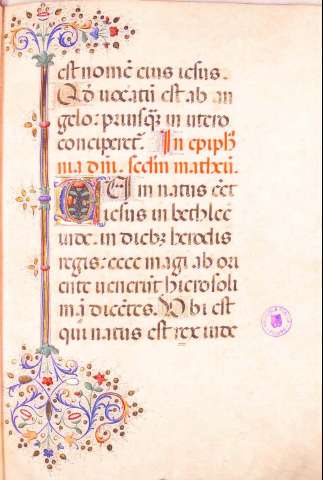 est nomē eius iesus.
Qđ uocatū est ab an
gelo: priusq̄ȝ in utero
conciperet̄. In epiph̄
nia dn̄i. scd̄m matheū.
Cum natus eēt
iesus in bethleē
iude. in diebȝ herodis
regis: ecce magi ab ori
ente uenerūt hierosoli
mā dicētes. Vbi est
qui natus est rex iude